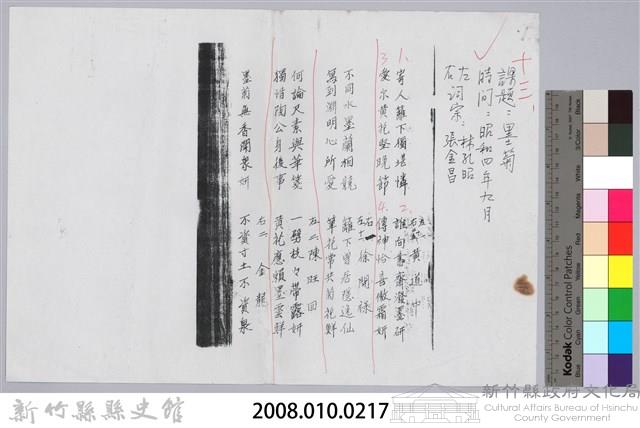 十三、
課題：墨菊
時間：昭和四年九月
左詞宗：林孔昭
右　　　張金昌
左一右　黃道中
1、寄人籬下獨堪憐
2、誰向書齋潑墨研
3、愛尔黃花堅晚節
4、傳神恰喜傲霜妍
左十右　徐開祿
不同水墨蘭相競
籬下曾居隱逸仙
寫到淵明心所愛
筆花常共菊花鮮
右二　陳旺回
何論尺素與華箋
一劈枝々帶露妍
獨諳陶公身後事
黃花應賴墨雲鮮
右二　金龍
墨菊無香開衆妍
不資寸土不資泉
Kodak Color Control Patches
Black
3/Color
White
Magenta
Red
Yellow
Green
Cyan
Blue
新竹縣縣史館
2008.010.0217
新竹縣政府文化局
Cultural Affairs Bureau of Hsinchu
County Government